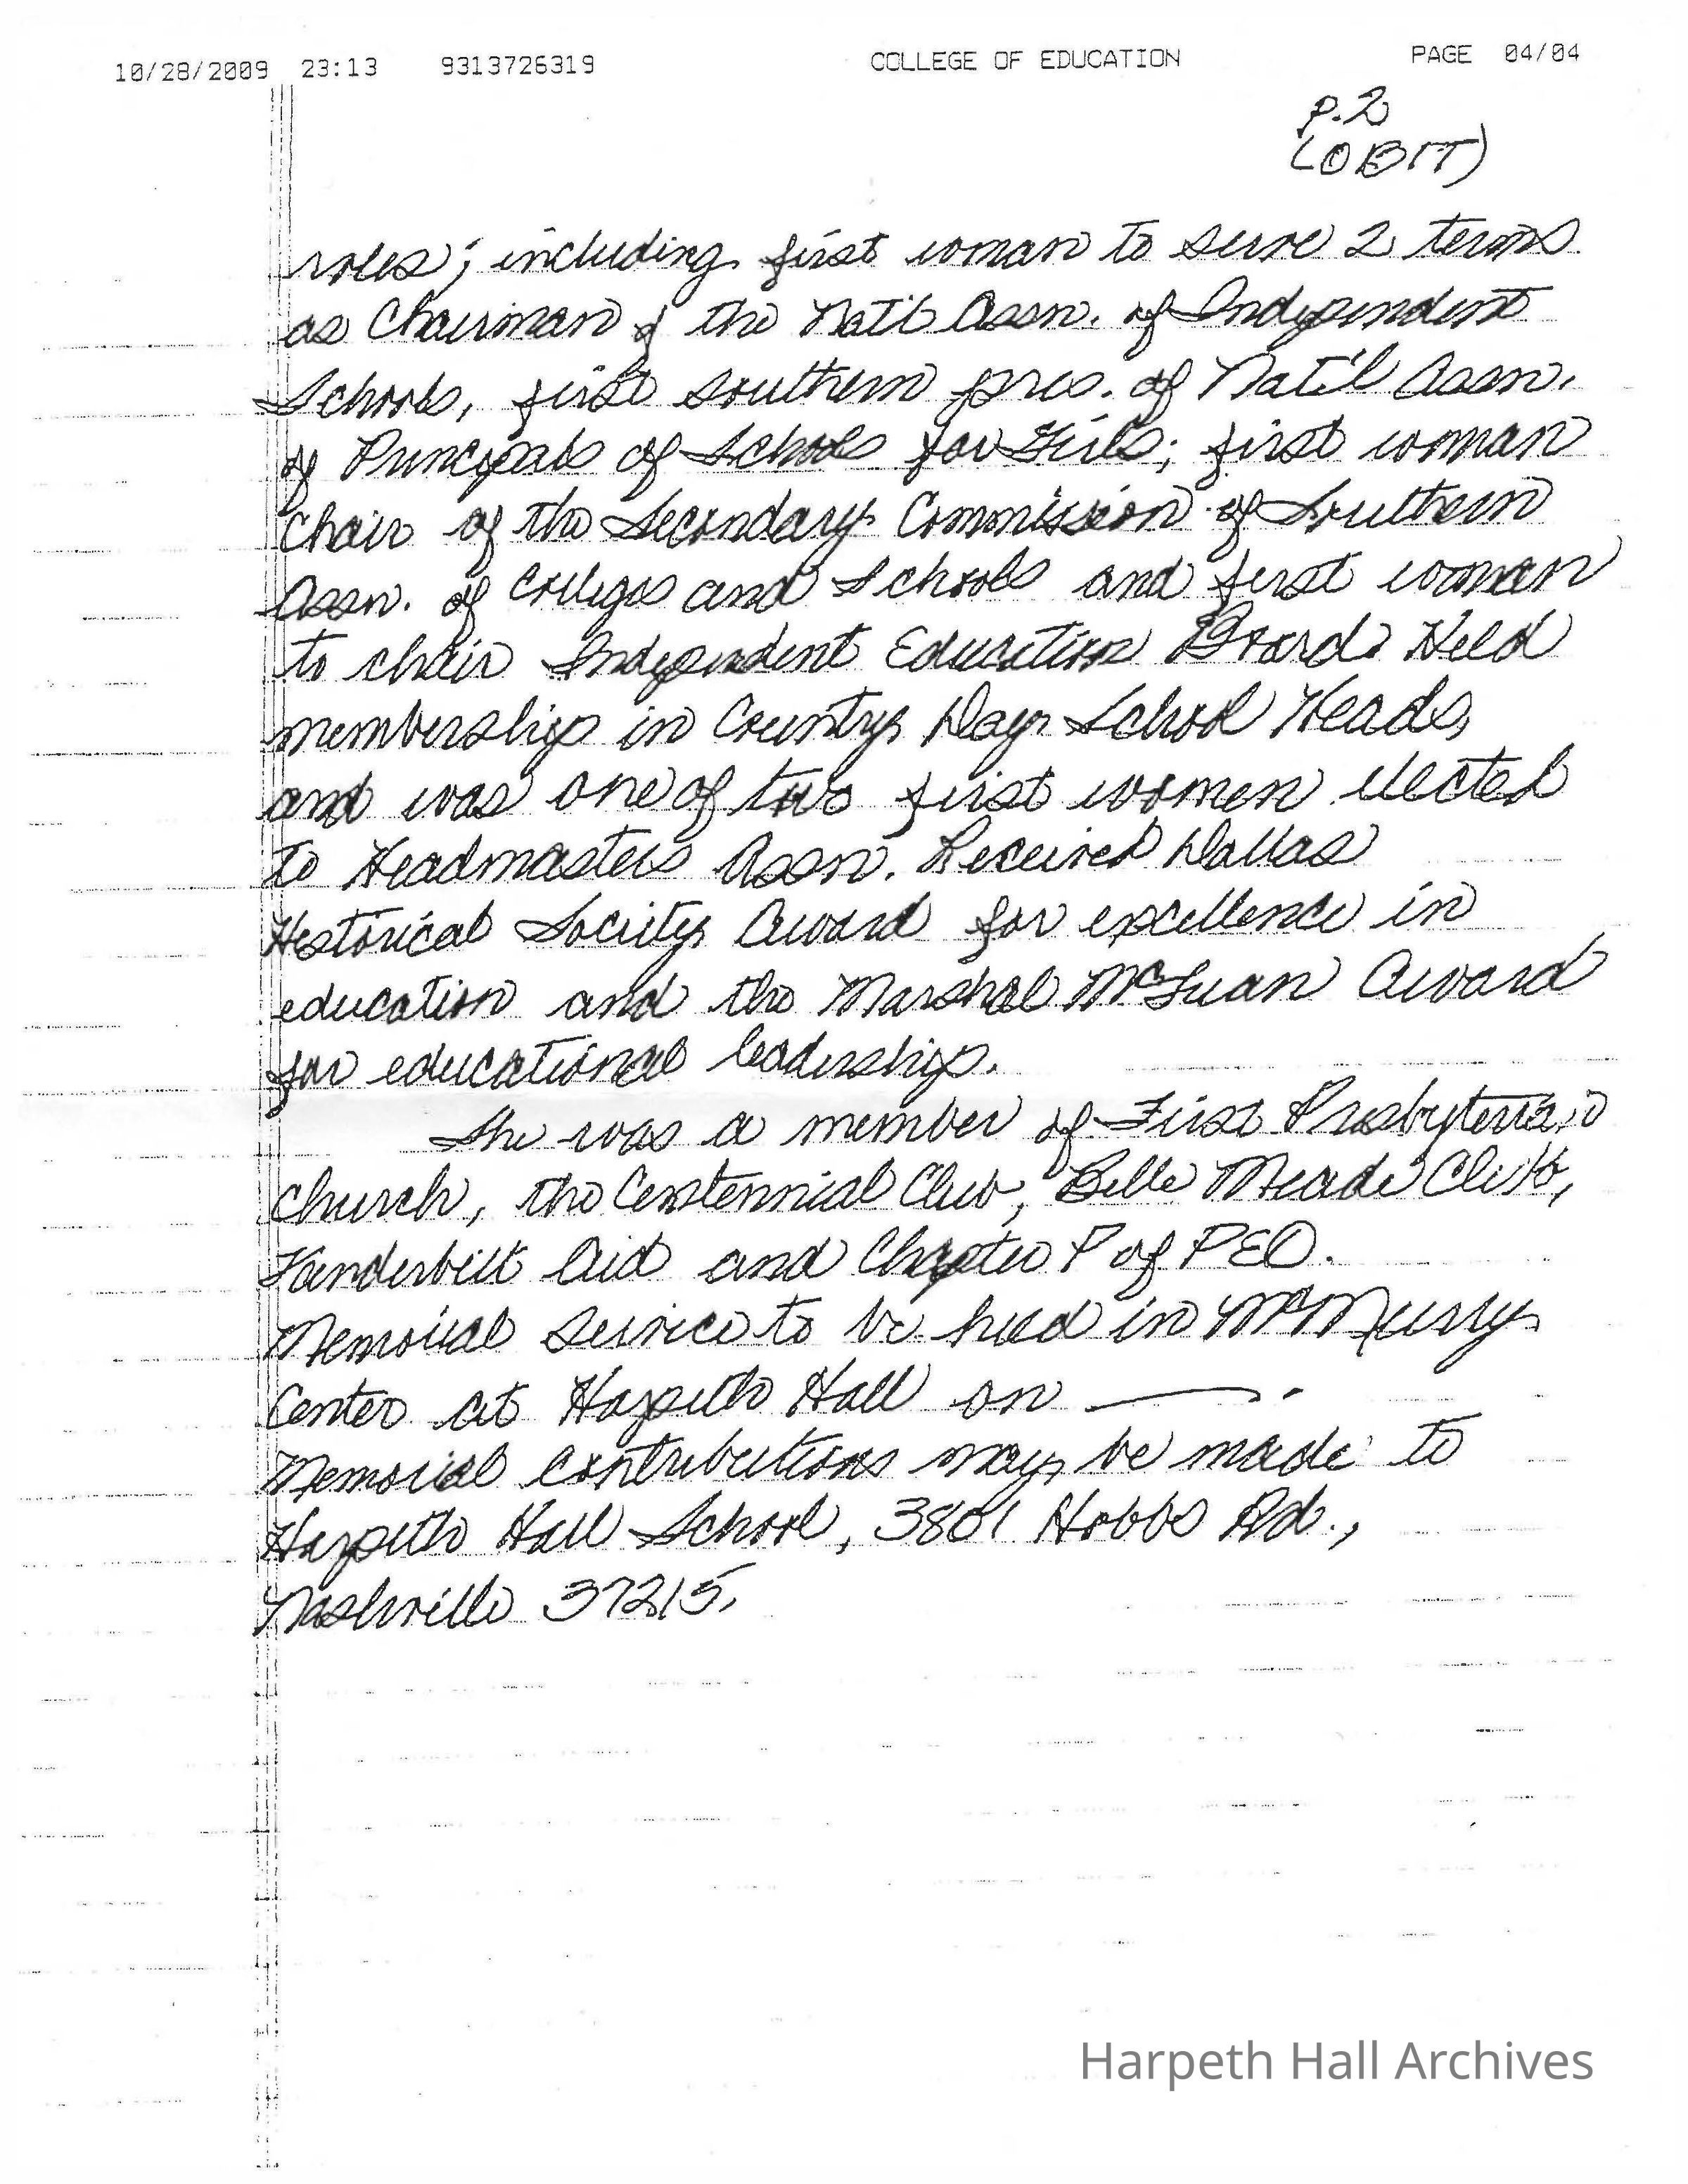 10/28/2009 23:13 9313726319 COLLEGE OF EDUCATION PAGE 04/04
P.2
(OBIT)
roles; including first woman to serve 2 terms
as Chairman of the Nat'l Assn. of Independent
Schools, first southern pres. of Nat'l Assn.
of Principals of Schools for Girls; first woman
chair of the Secondary Commission of Southern
Assn. of Colleges and Schools and first woman
to chair Independent Education Board. Held
membership in Country Day School Heads,
and was one of two first women elected
to Headmasters Assn. Received Dallas
Historical Society Award for excellence in
education and the Marshal McLuan Award
for educational leadership.
She was a member of First Presbyterian
Church, the Centennial Club, Belle Meade Club,
Vanderbilt Aid and Chapter P of PEO.
Memorial service to be held in McMurry
Center at Harpeth Hall on ———.
Memorial contributions may be made to
Harpeth Hall School, 3801 Hobbs Rd.,
Nashville 37215.
Harpeth Hall Archives